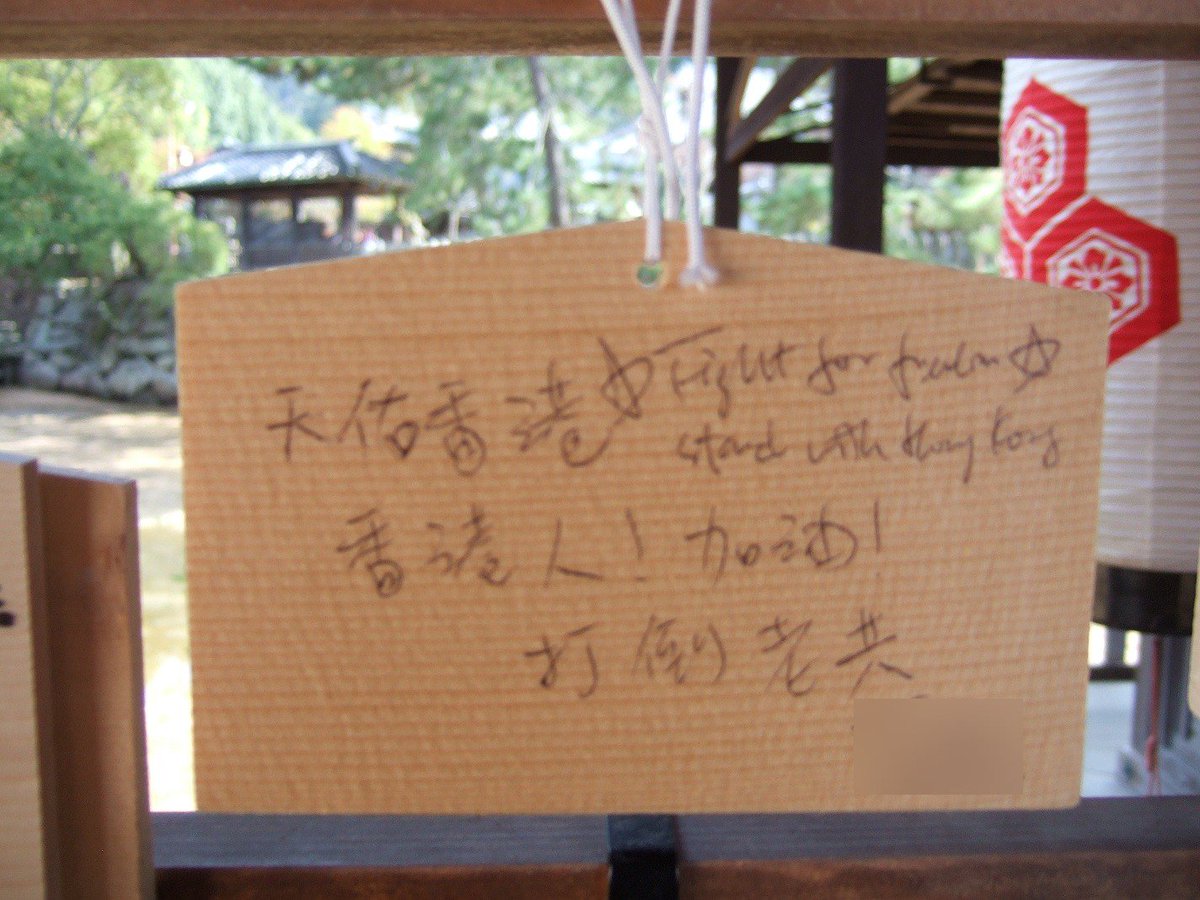 天佑香港☆Fight for freedom☆
stand with Hong Kong
香港人！加油！
打倒老共